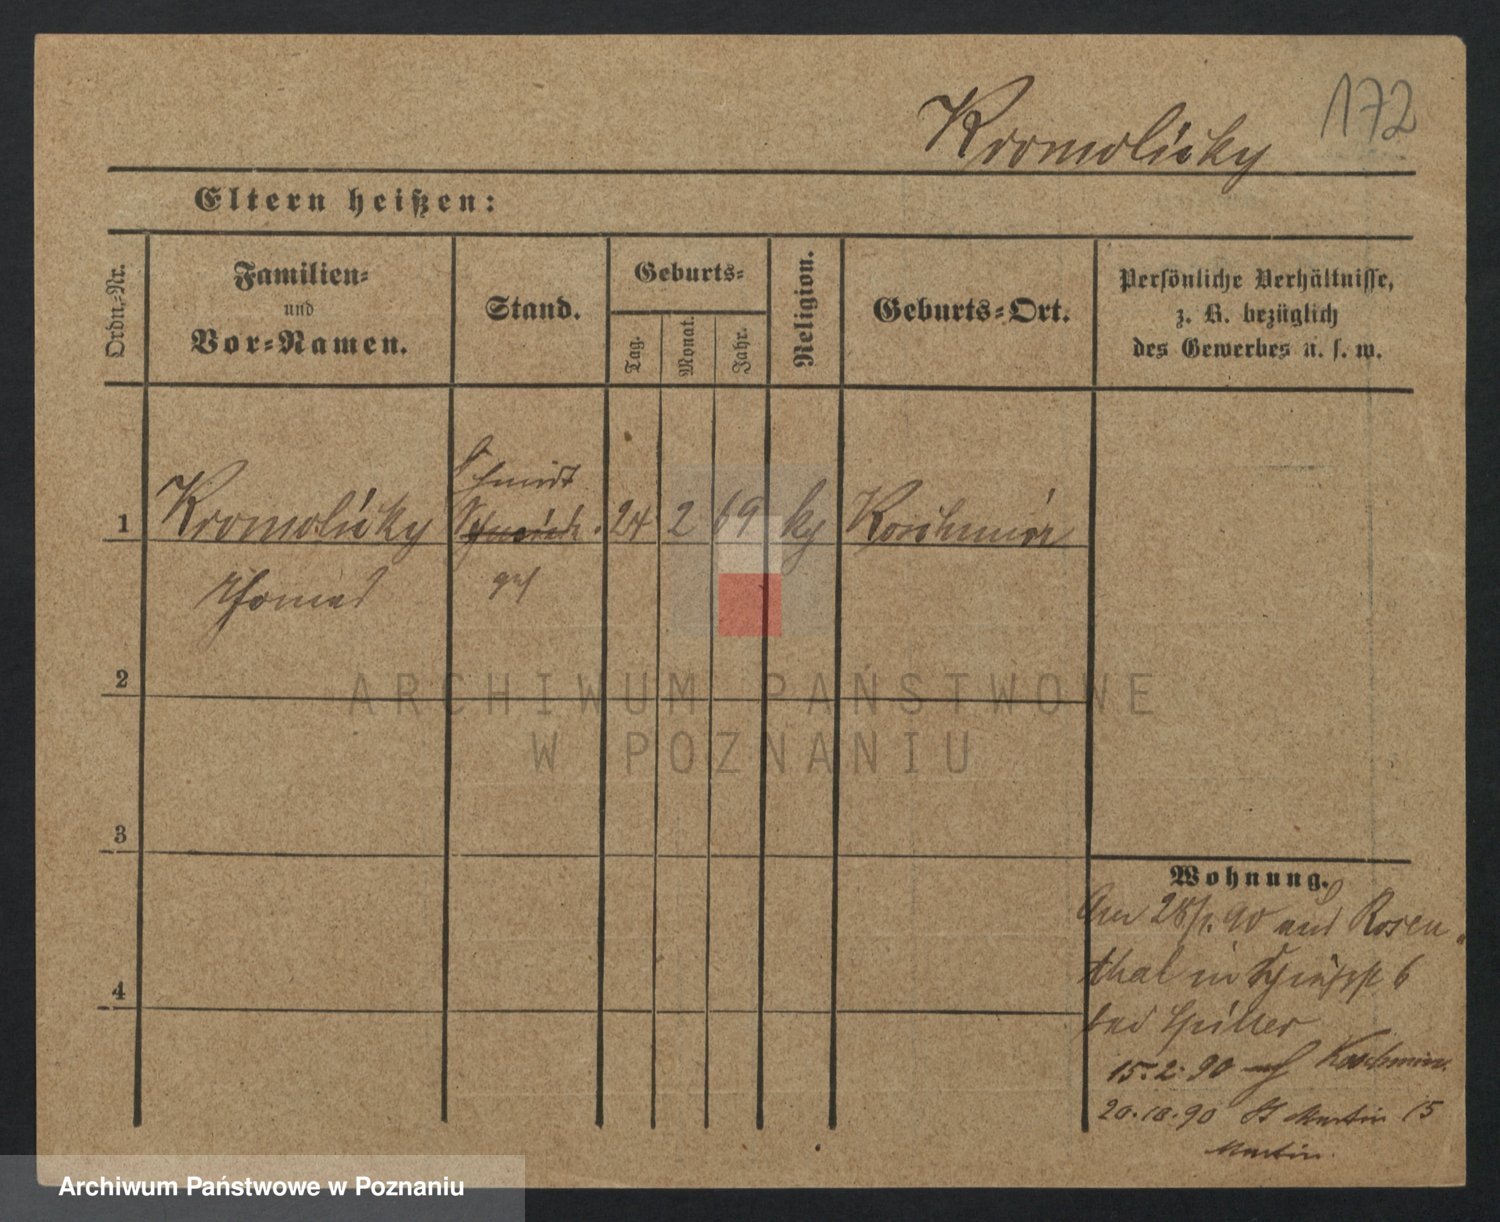 172
Kromolicky
Eltern heißen:
Ordn.-Nr.
Familien-
und
Vor-Namen.
Stand.
Geburts-
Tag.
Monat.
Jahr.
Religion.
Geburts-Ort.
Persönliche Verhältnisse,
z. B. bezüglich
des Gewerbes u. s. w.
Schmidt
1 Kromolicky 24 2 69 ky Koschmin
Thomas
2
3
4
Wohnung.
28/1. 90 aus Rosen
thal in 6
bei
15.2.90 Koschmin
20.10.90 St Martin 15
Martin.
ARCHIWUM PAŃSTWOWE
W POZNANIU
Archiwum Państwowe w Poznaniu